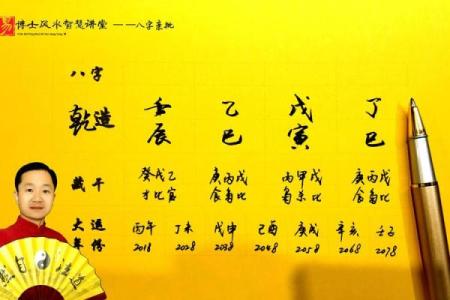 易 博士风水智慧讲堂 ——八字亲批
八字
乾造 壬 乙 戊 丁
辰 巳 寅 巳
藏干 癸戊乙 庚丙戊 丙甲戊 庚丙戊
才比官 食枭比 枭杀比 食枭比
大运 丙午 丁未 戊申 己酉 庚戌 辛亥 壬子
年份 2018 2028 2038 2048 2058 2068 2078